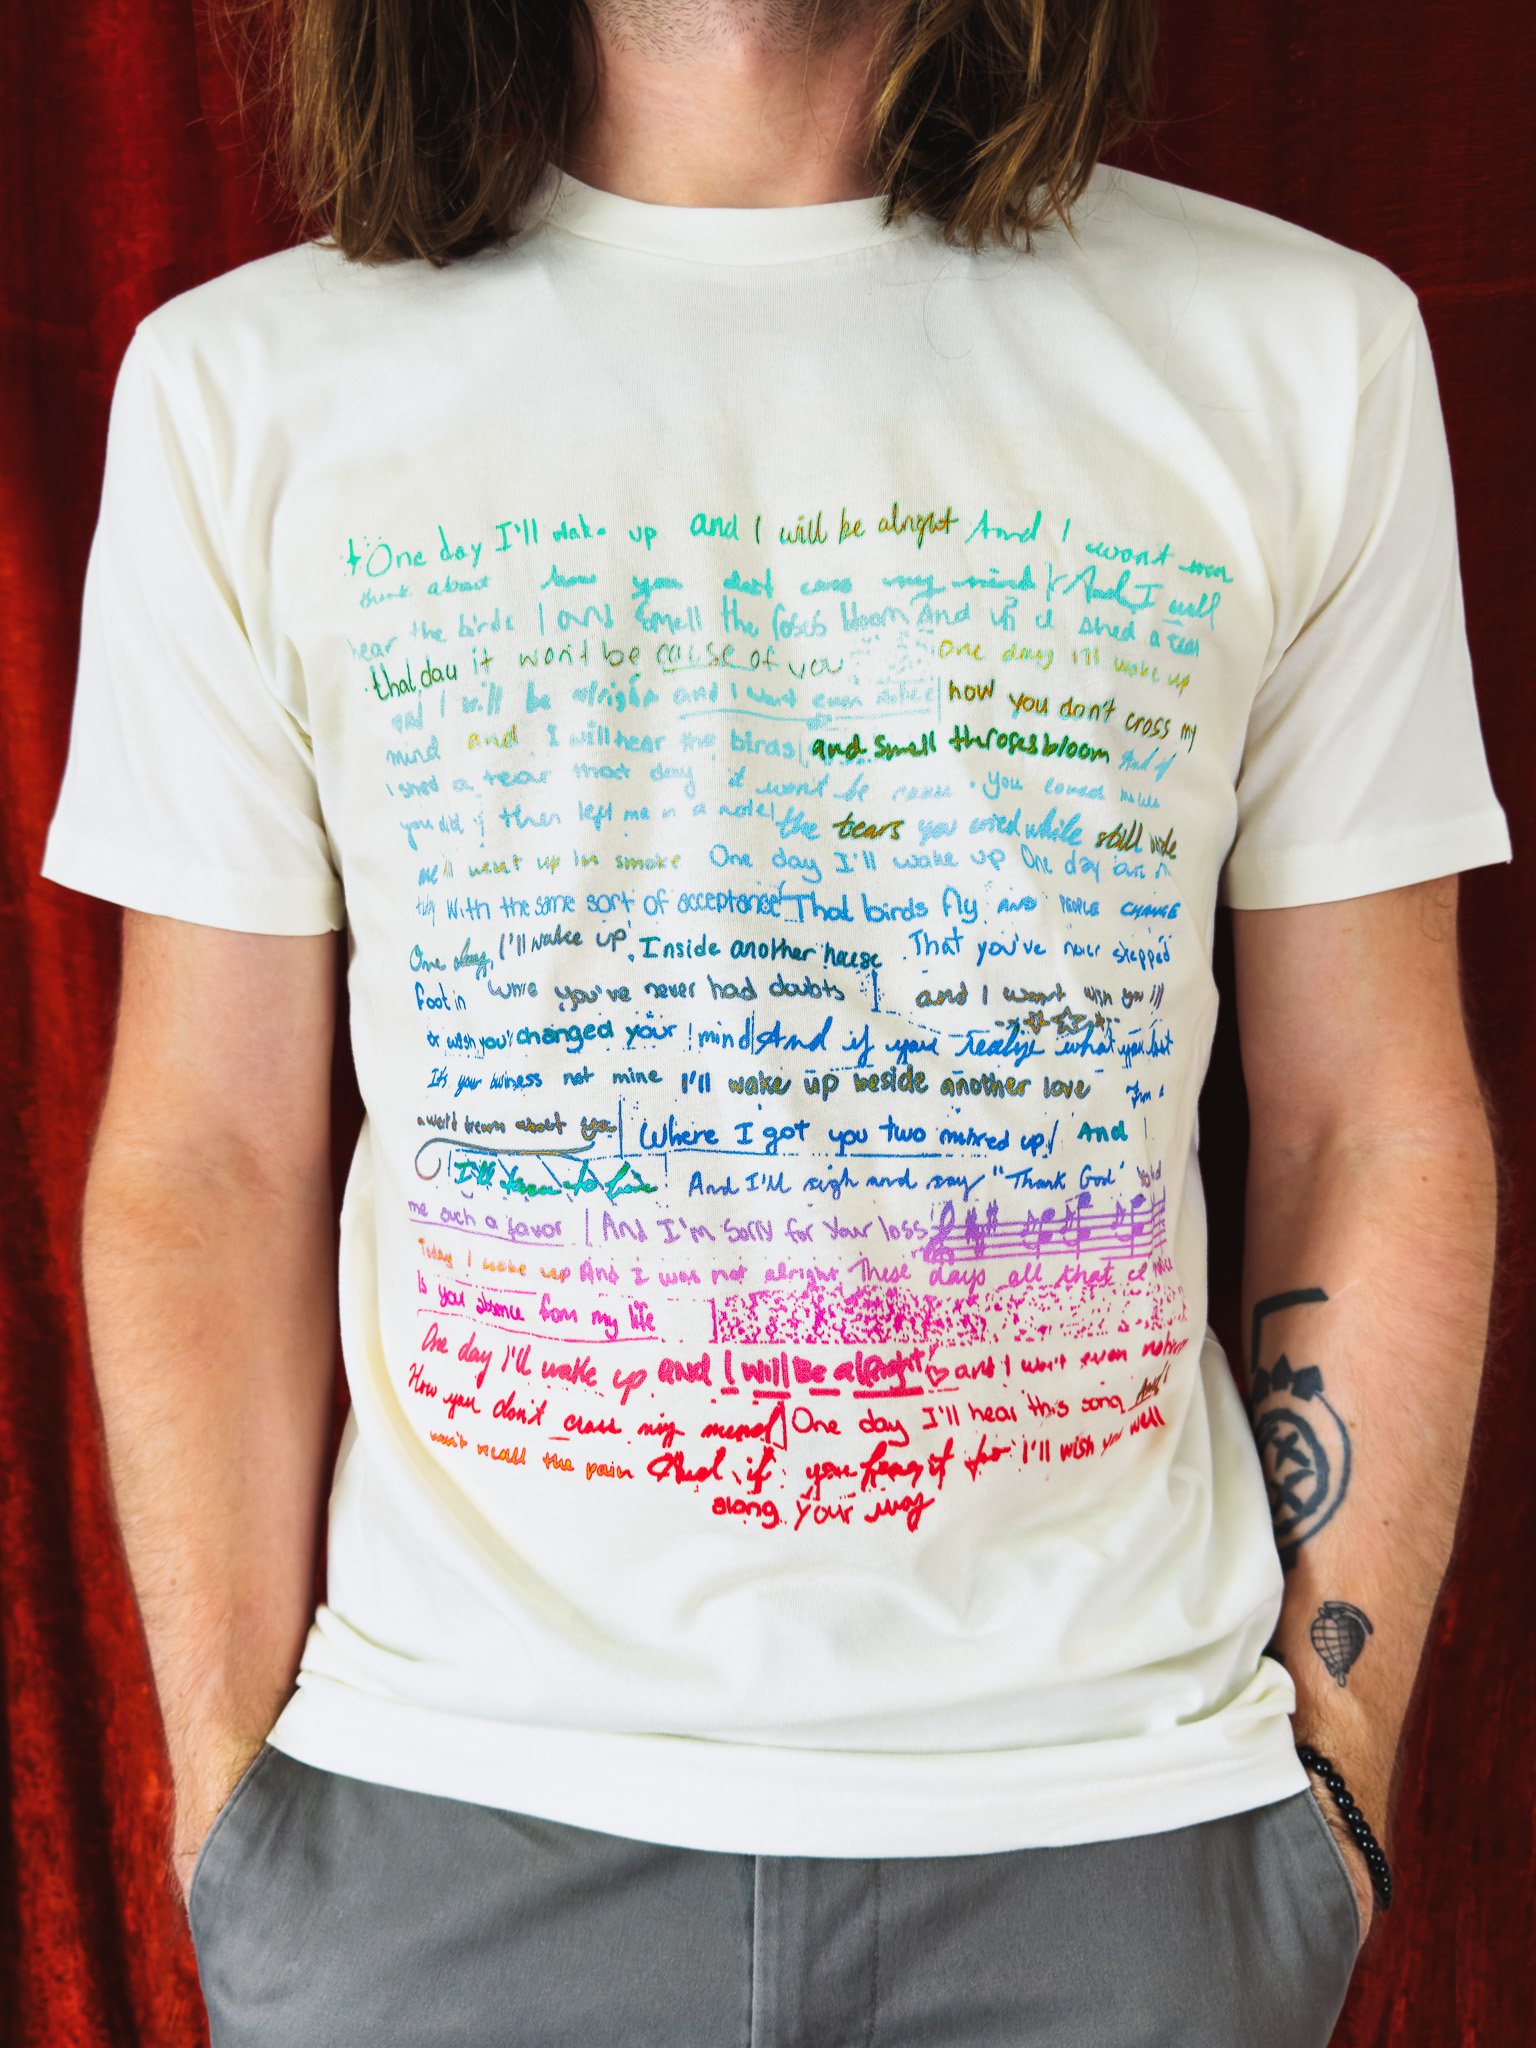 One day I'll wake up and I will be alright And I won't even
think about how you dont cross my mind And I will
hear the birds | and smell the roses bloom And if I shed a tear
that day it won't be cause of you One day I'll wake up
and I will be alright and I won't even notice how you don't cross my
mind and I will hear the birds and smell the roses bloom And if
I shed a tear that day it won't be cause you
you did & then left me in a note the tears you cried while still
me went up in smoke One day I'll wake up One day
With the same sort of acceptance That birds fly AND PEOPLE CHANGE
One day, I'll wake up, Inside another house That you've never stepped
foot in While you've never had doubts and I won't wish you ill
or wish you changed your mind And if you realize what you lost
It's your business not mine I'll wake up beside another love From a
weird dream about you Where I got you two mixed up And
I'll turn to him And I'll sigh and say "Thank God"
me such a favor | And I'm sorry for your loss
Today I woke up And I was not alright These days all that I notice
Is you absence from my life
One day I'll wake up and I will be alright and I won't even notice
How you don't cross my mind One day I'll hear this song And I
won't recall the pain And if you hear it too I'll wish you well
along your way